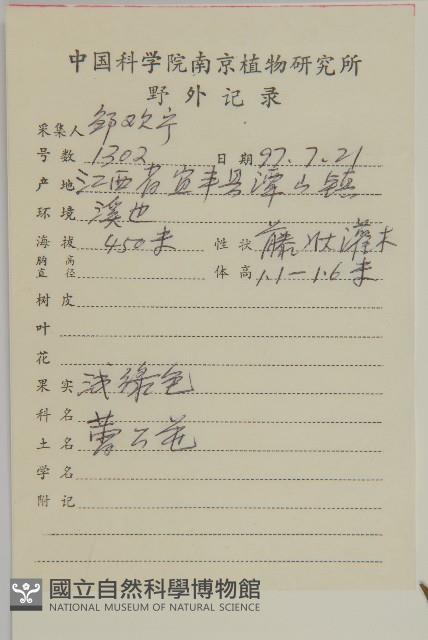 中国科学院南京植物研究所
野外记录
采集人 邹欢宁
号数 1302 日期 97.7.21
产地 江西省宜丰县潭山镇
环境 溪边
海拔 450米 性状 藤状灌木
胸高直径 体高 1.1—1.6米
树皮
叶
花
果实 浅绿色
科名
土名
学名
附记
國立自然科學博物館
NATIONAL MUSEUM OF NATURAL SCIENCE